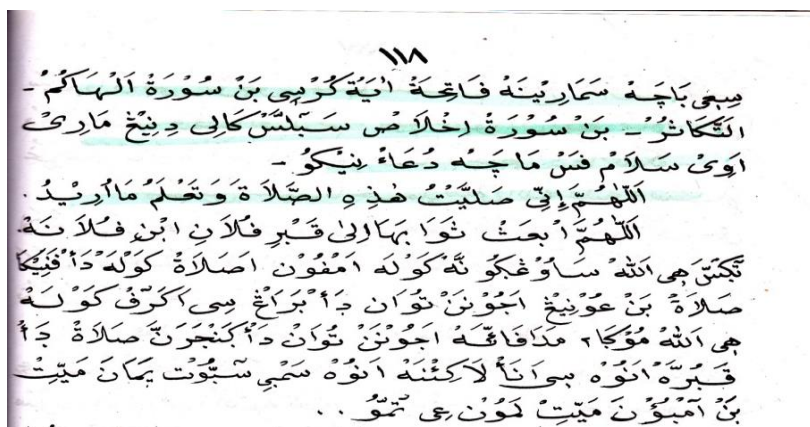 ١١٨
سڠى باچه سمارينه فاتحة أية كرسى بن سورة الهاكم -
التكاثر - بن سورة إخلاص سبلس كالى دنيڠ مارى
اوى سلام فس ماچه دعاء نيكو -
اَللّٰهُمَّ إِنِّى صَلَّيْتُ هٰذِهِ الصَّلَاةَ وَتَعْلَمُ مَا أُرِيْدُ.
اَللّٰهُمَّ ابْعَثْ ثَوَابَهَا اِلٰى قَبْرِ فُلَانِ ابْنِ فُلَانَةْ
تڬسّ هى الله ساوڠڬو نه كوله امفون اصلاة كوله دأفنيكا
صلاة بن عونيڠ اجونن توان دأبراڠ سى اكرف كوله
هى الله موڬا٢ مدافاڠه اجونن توان دأڬنجرن صلاة دأ
قبره انوه سى انأ لاكئنه انوه سمبى سبوت يمان ميت
بن امبؤن ميت لمون عى تمو ..